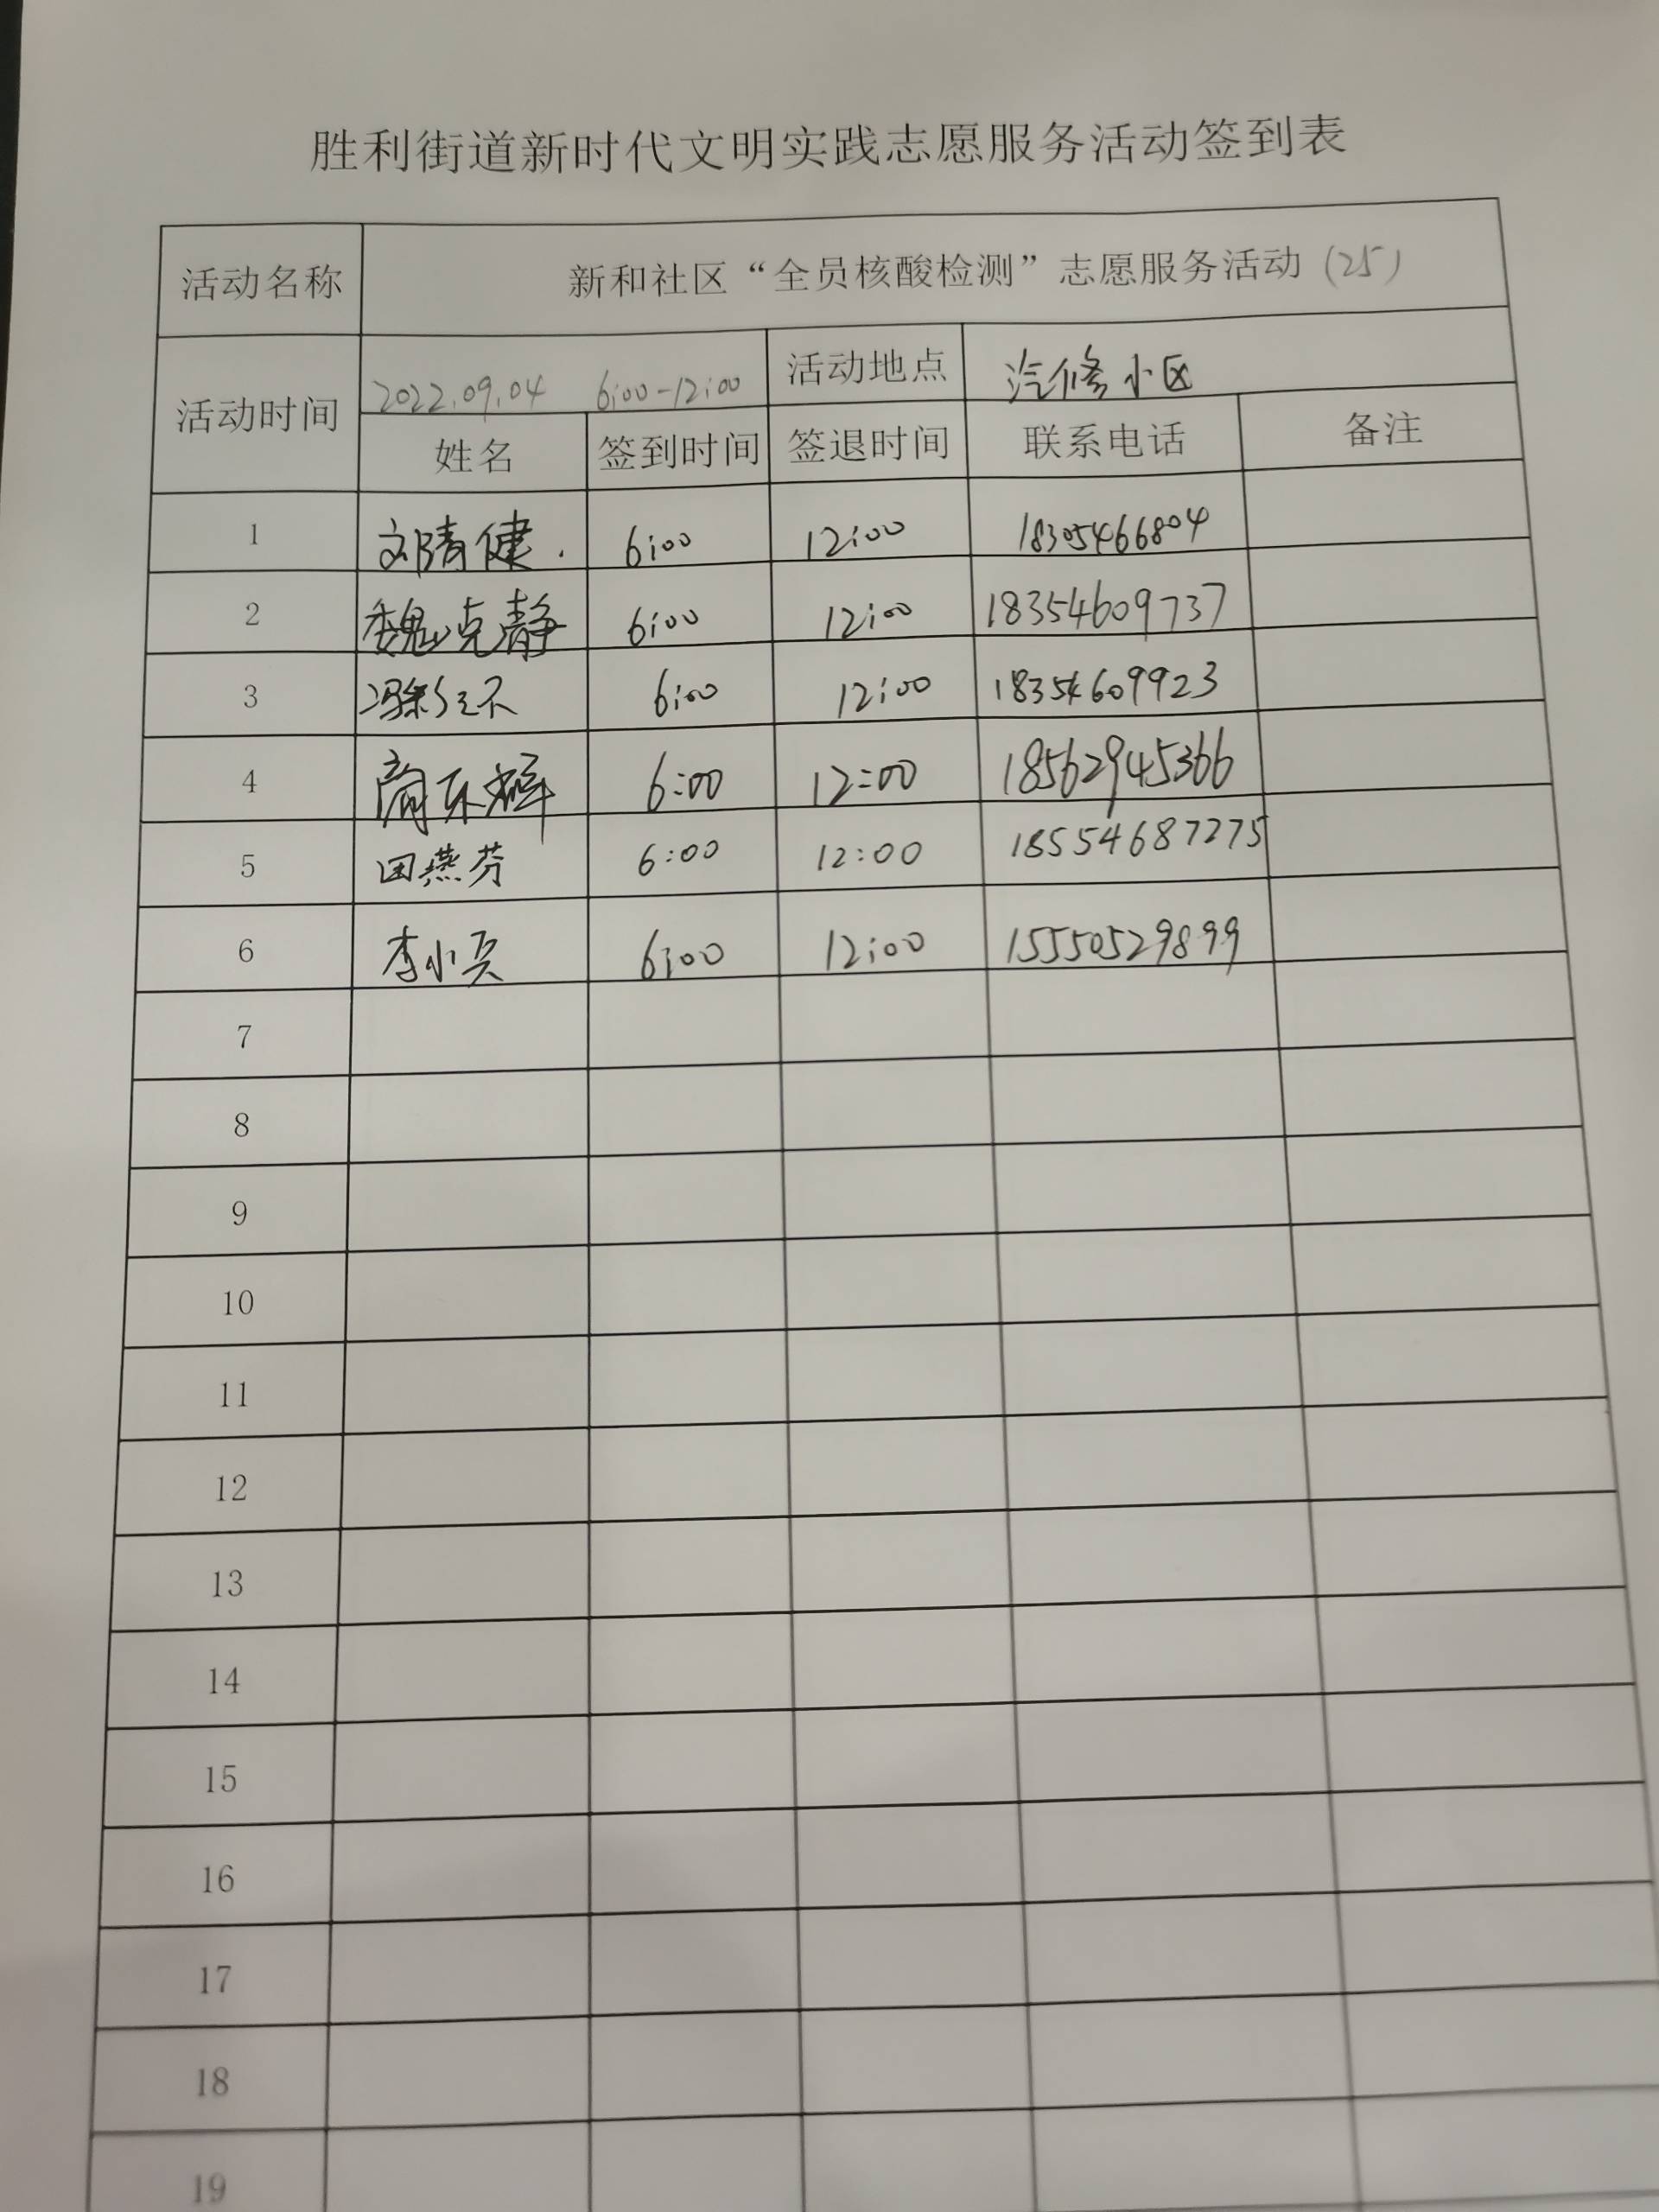 胜利街道新时代文明实践志愿服务活动签到表
活动名称 新和社区“全员核酸检测”志愿服务活动(25)
活动时间 2022.09.04 6:00-12:00 活动地点 汽修小区
姓名 签到时间 签退时间 联系电话 备注
1 刘青健. 6:00 12:00 18305466804
2 魏克静 6:00 12:00 18354609737
3 6:00 12:00 18354609923
4 6:00 12:00 18562945366
5 田燕芬 6:00 12:00 18554687275
6 李小 6:00 12:00 15550529899
7
8
9
10
11
12
13
14
15
16
17
18
19